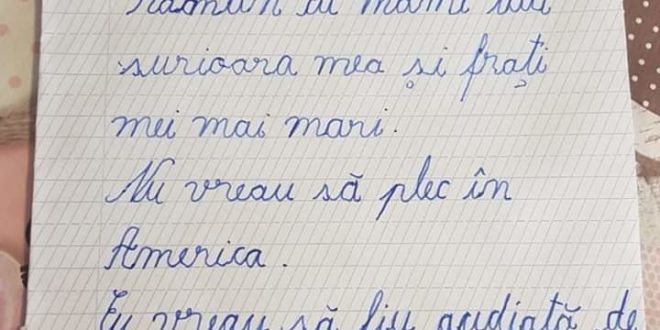 surioara mea și frați
mei mai mari.
Nu vreau să plec în
America.
Eu vreau să fiu audiată de